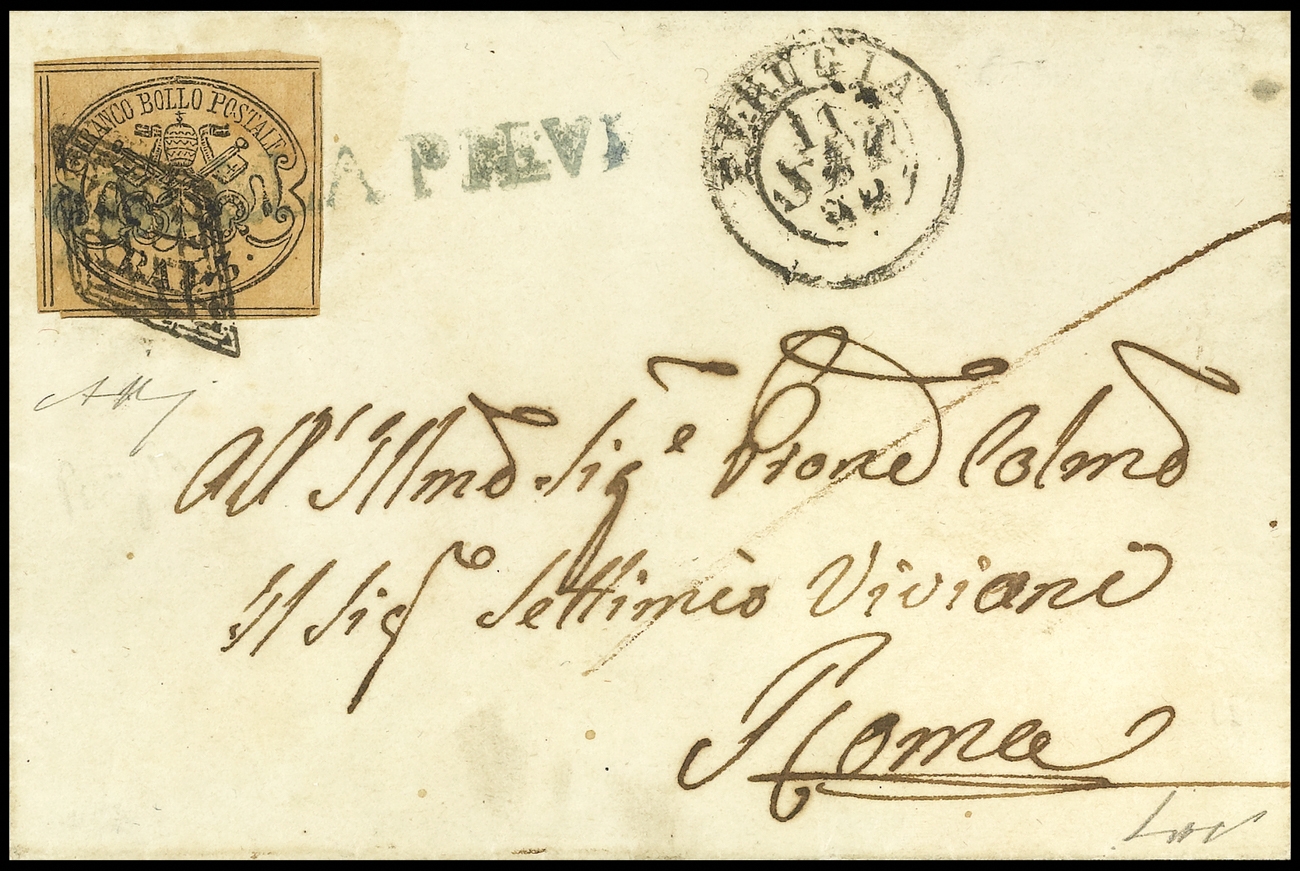 FRANCO BOLLO POSTALE
BAI. 3.
A PIEVE
PERUGIA
11
SET
All' Illmo Sig.e Prone Colmo
Il Sig Settimio Viviani
Roma